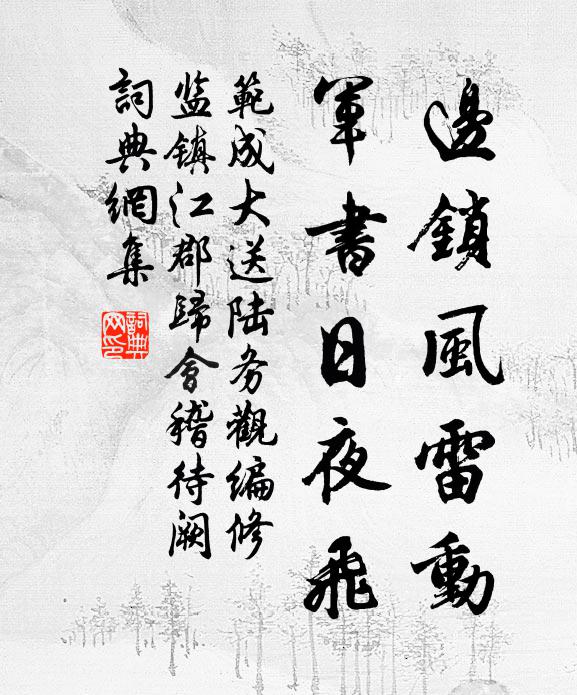 邊鎖風雷動
軍書日夜飛
範成大送陆务觀编修
监镇江郡歸會稽待阙
詞典網集
詞典网印